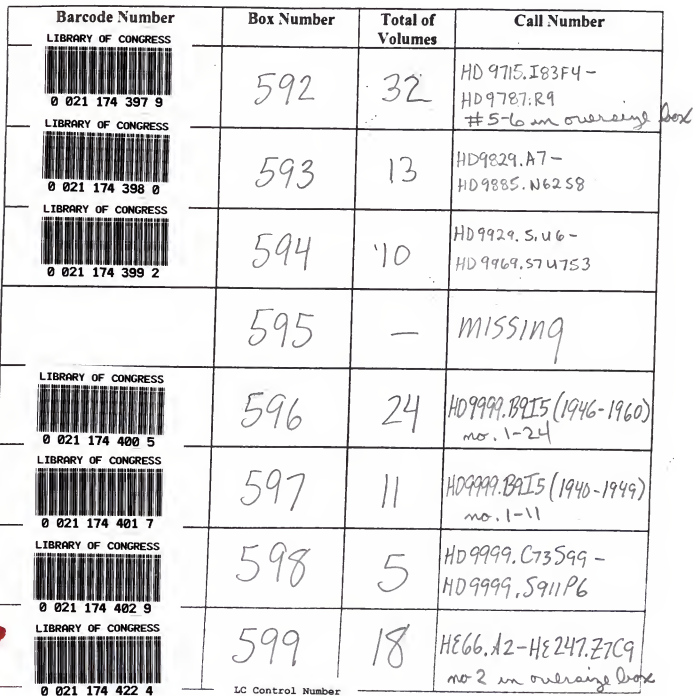 Barcode Number Box Number Total of Volumes Call Number
LIBRARY OF CONGRESS
0 021 174 397 9
592
32
HD 9715.I83F4 –
HD9787.R9
#5-6 in oversize box
LIBRARY OF CONGRESS
0 021 174 398 0
593
13
HD9829.A7 –
HD9885.N62S8
LIBRARY OF CONGRESS
0 021 174 399 2
594
10
HD9929.5.U6 –
HD9969.S7U753
595
—
missing
LIBRARY OF CONGRESS
0 021 174 400 5
596
24
HD9999.B9I5 (1946-1960)
no. 1-24
LIBRARY OF CONGRESS
0 021 174 401 7
597
11
HD9999.B9I5 (1940-1949)
no. 1-11
LIBRARY OF CONGRESS
0 021 174 402 9
598
5
HD9999.C73S99 –
HD9999.S911P6
LIBRARY OF CONGRESS
0 021 174 422 4
599
18
HE66.A2-HE247.Z7C9
no 2 in oversize box
LC Control Number